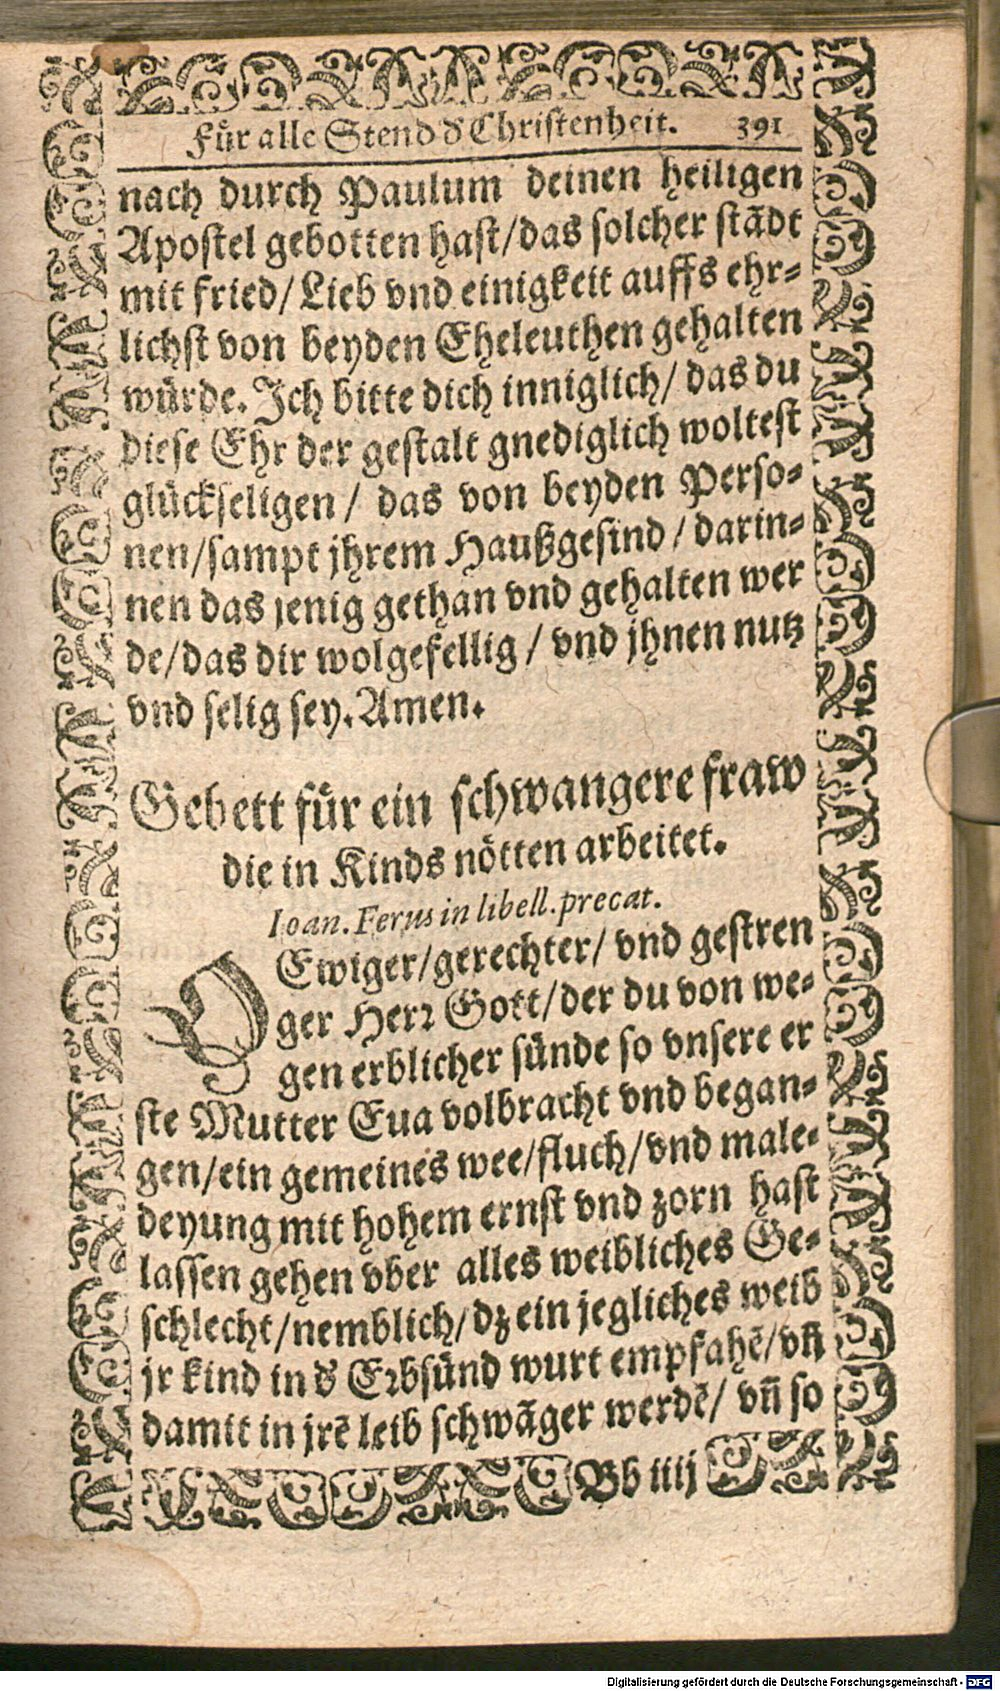 Für alle Stend d' Christenheit. 391
nach durch Paulum deinen heiligen
Apostel gebotten hast/das solcher stãdt
mit fried/Lieb vnd einigkeit auffs ehr-
lichst von beyden Eheleuthen gehalten
würde. Ich bitte dich inniglich/ das du
diese Ehr der gestalt gnediglich woltest
glückseligen/ das von beyden Perso-
nen/sampt jhrem Haußgesind/darin-
nen das jenig gethan vnd gehalten wer
de/das dir wolgefellig/ vnd jhnen nutz
vnd selig sey. Amen.
Gebett für ein schwangere fraw
die in Kinds nötten arbeitet.
Ioan. Ferus in libell. precat.
O Ewiger/gerechter/ vnd gestren
ger Herr Gott/der du von we-
gen erblicher sünde so vnsere er
ste Mutter Eua volbracht vnd began-
gen/ein gemeines wee/fluch/vnd male-
deyung mit hohem ernst vnd zorn hast
lassen gehen vber alles weibliches Ge-
schlecht/nemblich/dz ein jegliches weib
jr kind in d' Erbsünd wurt empfahẽ/vñ
damit in jrẽ leib schwãger werdẽ/ vñ so
Bb iiij
Digitalisierung gefördert durch die Deutsche Forschungsgemeinschaft - DFG